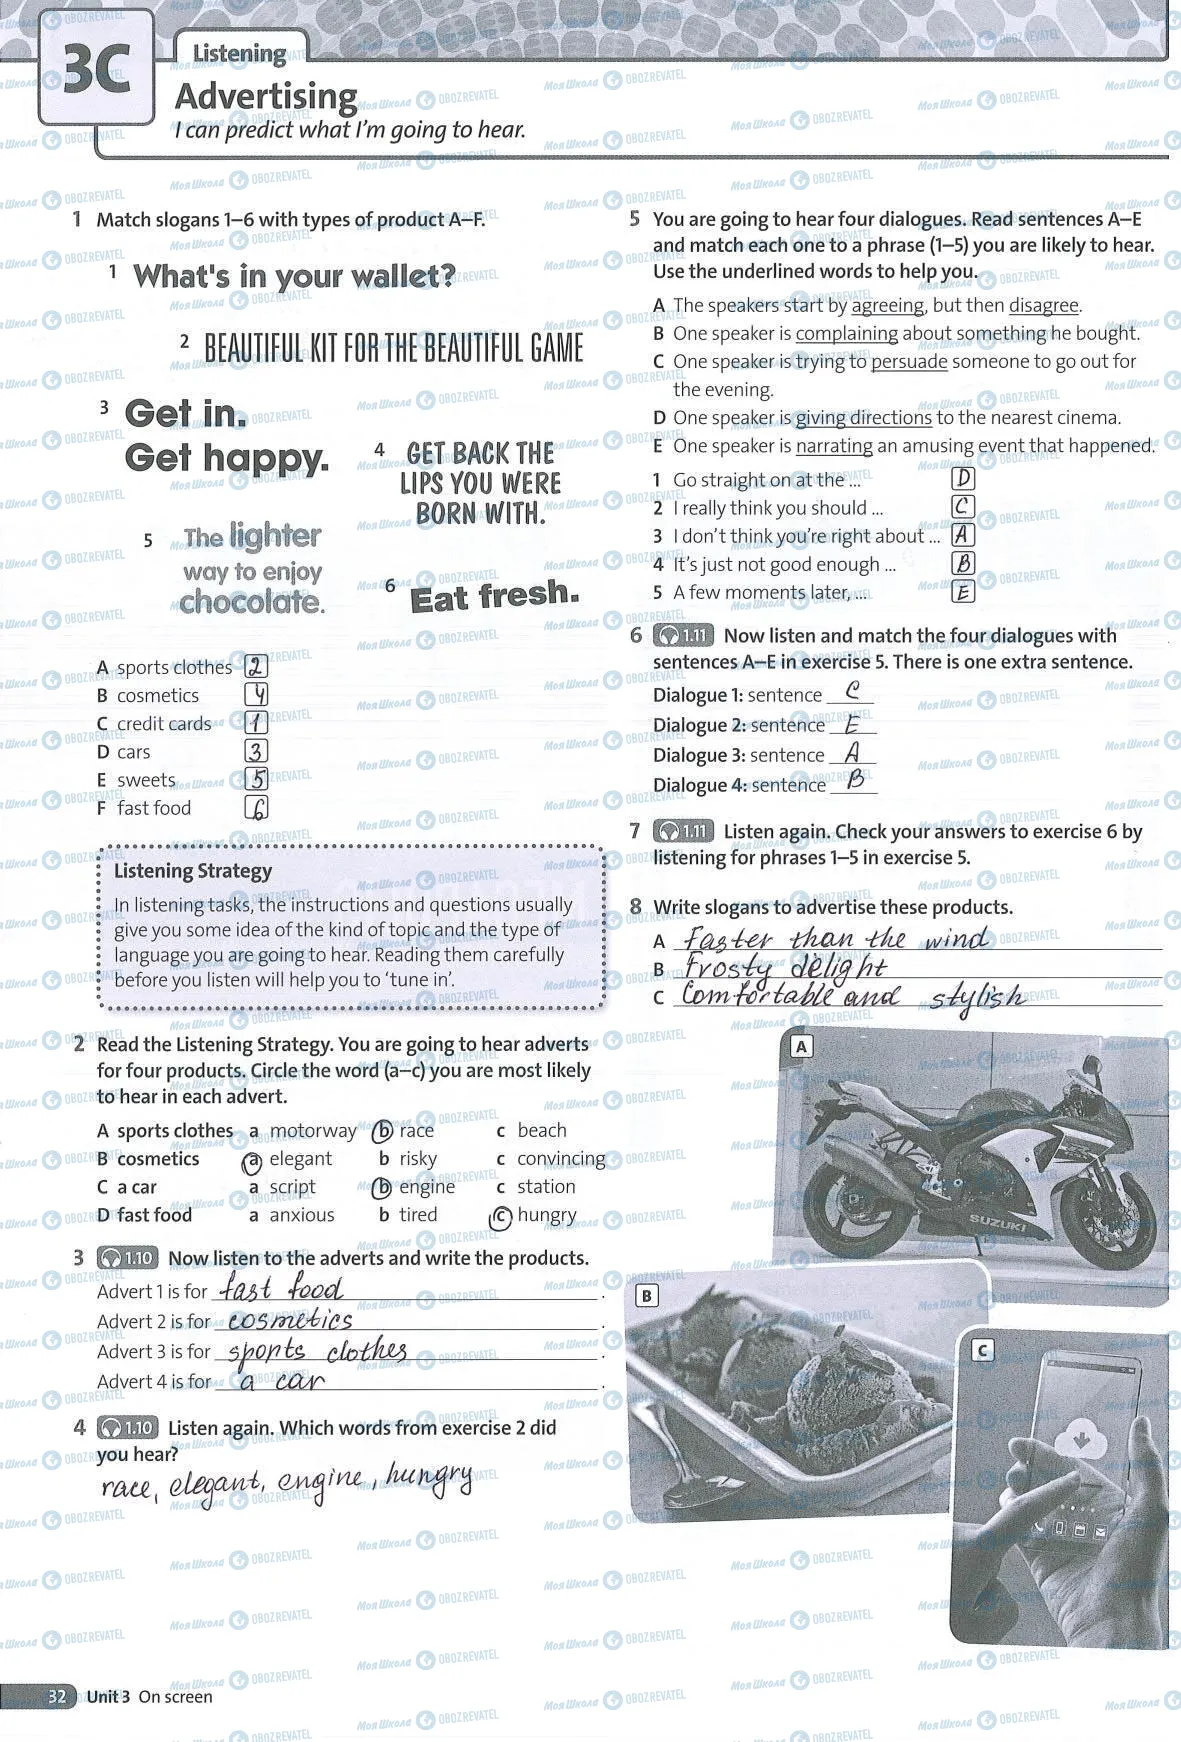 3C
Listening
Advertising
I can predict what I'm going to hear.
1 Match slogans 1–6 with types of product A–F.
1 What's in your wallet?
2 BEAUTIFUL KIT FOR THE BEAUTIFUL GAME
3 Get in.
Get happy.
4 GET BACK THE
LIPS YOU WERE
BORN WITH.
5 The lighter
way to enjoy
chocolate.
6 Eat fresh.
A sports clothes 2
B cosmetics 4
C credit cards 1
D cars 3
E sweets 5
F fast food 6
Listening Strategy
In listening tasks, the instructions and questions usually
give you some idea of the kind of topic and the type of
language you are going to hear. Reading them carefully
before you listen will help you to 'tune in'.
2 Read the Listening Strategy. You are going to hear adverts
for four products. Circle the word (a–c) you are most likely
to hear in each advert.
A sports clothes a motorway b race c beach
B cosmetics a elegant b risky c convincing
C a car a script b engine c station
D fast food a anxious b tired c hungry
3 1.10 Now listen to the adverts and write the products.
Advert 1 is for fast food.
Advert 2 is for cosmetics.
Advert 3 is for sports clothes.
Advert 4 is for a car.
4 1.10 Listen again. Which words from exercise 2 did
you hear?
race, elegant, engine, hungry
5 You are going to hear four dialogues. Read sentences A–E
and match each one to a phrase (1–5) you are likely to hear.
Use the underlined words to help you.
A The speakers start by agreeing, but then disagree.
B One speaker is complaining about something he bought.
C One speaker is trying to persuade someone to go out for
the evening.
D One speaker is giving directions to the nearest cinema.
E One speaker is narrating an amusing event that happened.
1 Go straight on at the ... D
2 I really think you should ... C
3 I don't think you're right about ... A
4 It's just not good enough ... B
5 A few moments later, ... E
6 1.11 Now listen and match the four dialogues with
sentences A–E in exercise 5. There is one extra sentence.
Dialogue 1: sentence C
Dialogue 2: sentence E
Dialogue 3: sentence A
Dialogue 4: sentence B
7 1.11 Listen again. Check your answers to exercise 6 by
listening for phrases 1–5 in exercise 5.
8 Write slogans to advertise these products.
A Faster than the wind
B Frosty delight
C Comfortable and stylish
A
SUZUKI
B
C
32 Unit 3 On screen
Моя Школа OBOZREVATEL